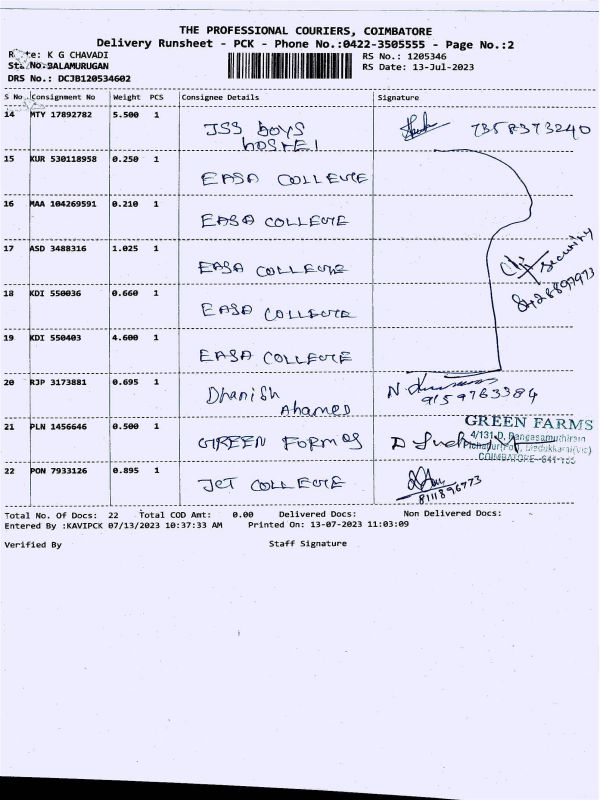 THE PROFESSIONAL COURIERS, COIMBATORE
Delivery Runsheet - PCK - Phone No.:0422-3505555 - Page No.:2
Route: K G CHAVADI RS No.: 1205346
No:BALAMURUGAN RS Date: 13-Jul-2023
DRS No.: DCJB120534602
S No Consignment No Weight PCS Consignee Details Signature
14 MTY 17892782 5.500 1 JSS boys 7358373240
hostel
15 KUR 530118958 0.250 1 EASA COLLEGE
16 MAA 104269591 0.210 1 EASA COLLEGE
17 ASD 3488316 1.025 1 EASA COLLEGE security
8428897973
18 KDI 550036 0.660 1 EASA COLLEGE
19 KDI 550403 4.600 1 EASA COLLEGE
20 RJP 3173881 0.695 1 Dhanish N
Ahamed 9159763384
21 PLN 1456646 0.500 1 GREEN FORMS D GREEN FARMS
4/131-D, Rangasamuthiram
Pichanur(Po), Madukkarai(Via)
COIMBATORE-641 105
22 PON 7933126 0.895 1 JCT COLLEGE
8111896773
Total No. Of Docs: 22 Total COD Amt: 0.00 Delivered Docs: Non Delivered Docs:
Entered By :KAVIPCK 07/13/2023 10:37:33 AM Printed On: 13-07-2023 11:03:09
Verified By Staff Signature